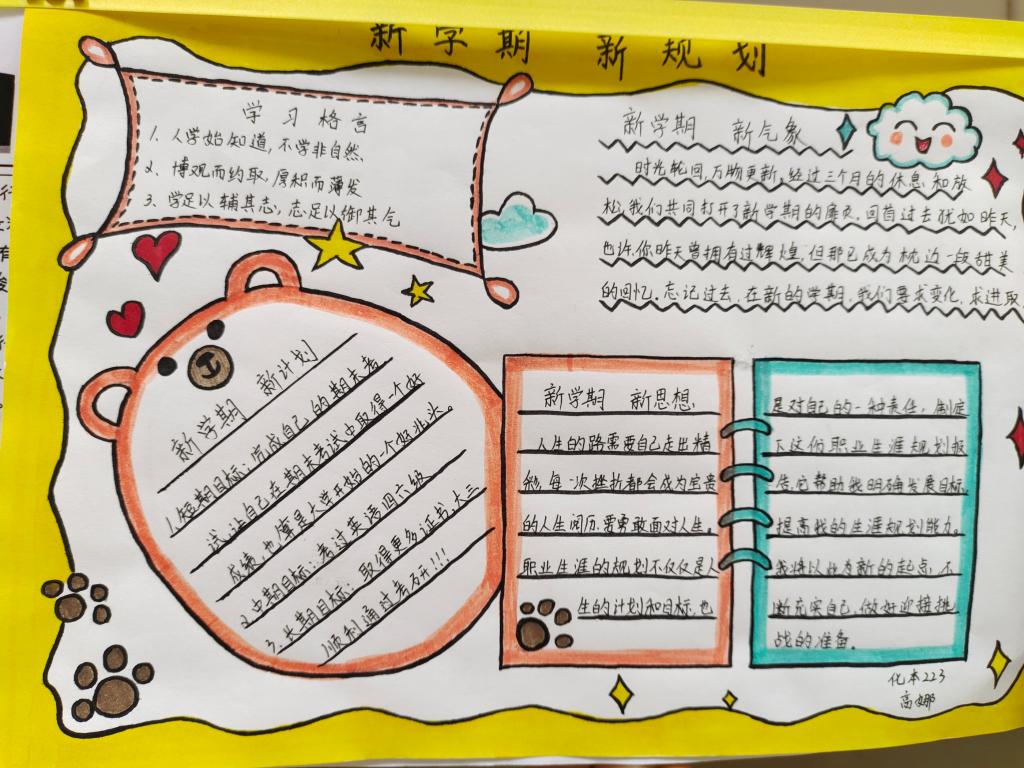 新学期 新规划
学习格言
1. 人学始知道,不学非自然、
2、博观而约取,厚积而薄发
3、学足以辅其志,志足以御其气
新学期 新气象
时光轮回,万物更新,经过三个月的休息和放
松,我们共同打开了新学期的扉页,回首过去犹如昨天,
也许你昨天曾拥有过辉煌,但那已成为枕边一段甜美
的回忆.忘记过去,在新的学期,我们要求变化,求进取
新学期 新计划
1.短期目标:完成自己的期末考
试,让自己在期末考试中取得一个好
成绩,也算是大学开始的一个好兆头。
2、中期目标:考过英语四六级
3、长期目标:取得更多证书,大三
顺利通过考研!!!
新学期 新思想
人生的路需要自己走出精
彩,每一次挫折都会成为宝贵
的人生阅历,要勇敢面对人生。
职业生涯的规划不仅仅是人
生的计划和目标,也
是对自己的一种责任,制定
下这份职业生涯规划报
告,它帮助我明确发展目标,
提高我的生涯规划能力。
我将以此为新的起点,不
断充实自己,做好迎接挑
战的准备。
化本223
高娜